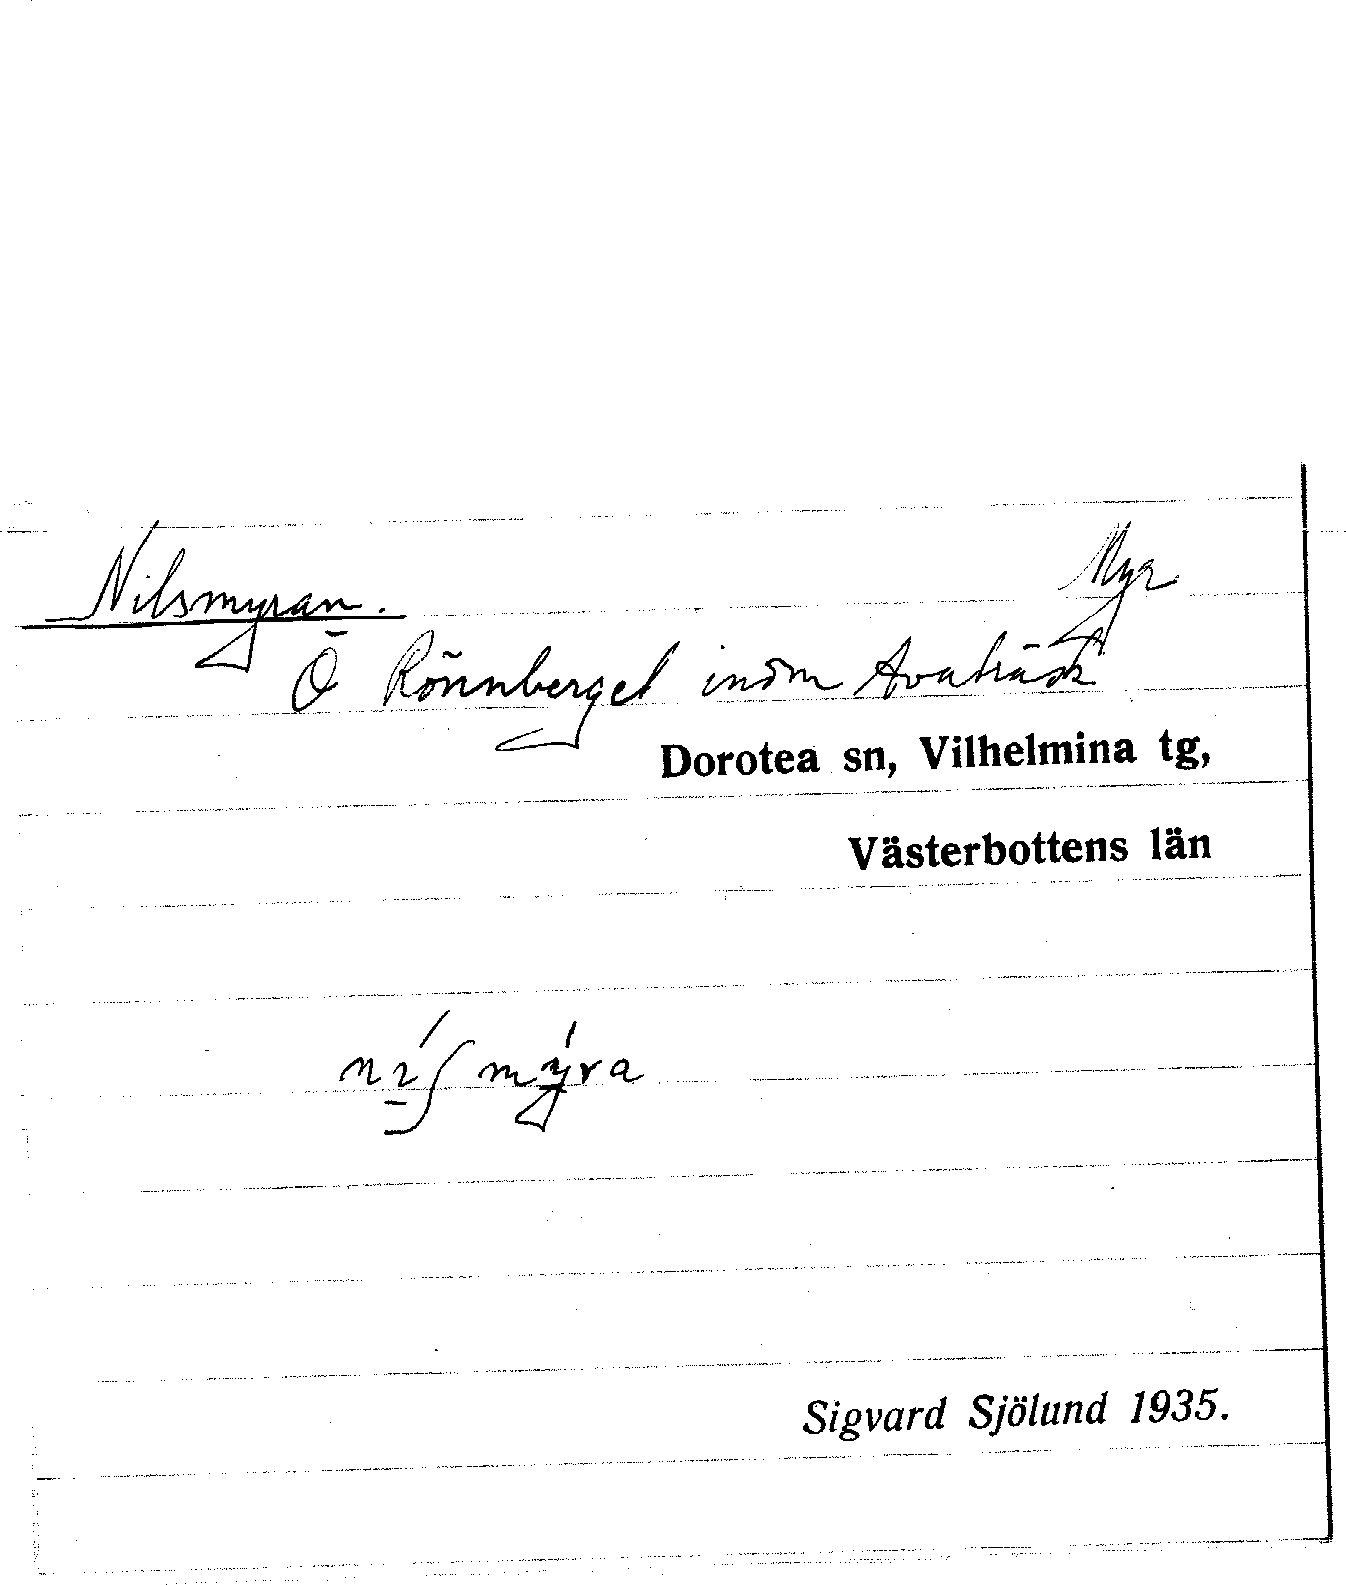 Nilsmyran. Myr
Ö Rönnberget inom Avaträsk
Dorotea sn, Vilhelmina tg,
Västerbottens län
Sigvard Sjölund 1935.